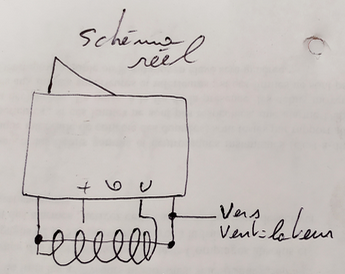 Schéma
réel
+ 6 U
Vers
ventilateur